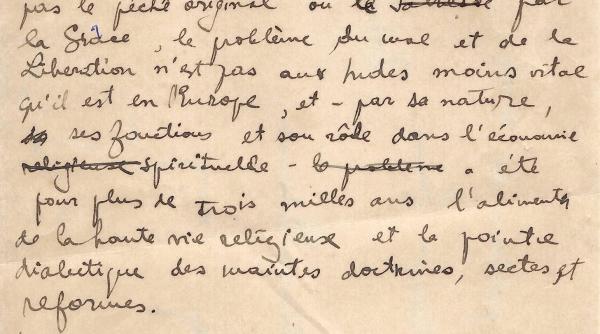 pas le péché original ou le par
la Grâce, le problème du mal et de la
Libération n'est pas aux Indes moins vital
qu'il est en l'Europe, et - par sa nature,
sa ses fonctions et son rôle dans l'économie
religieuse spirituelle - le problème a été
pour plus de trois milles ans l'aliment
de la haute vie religieuse et la pointe
dialectique des maintes doctrines, sectes et
reformes.